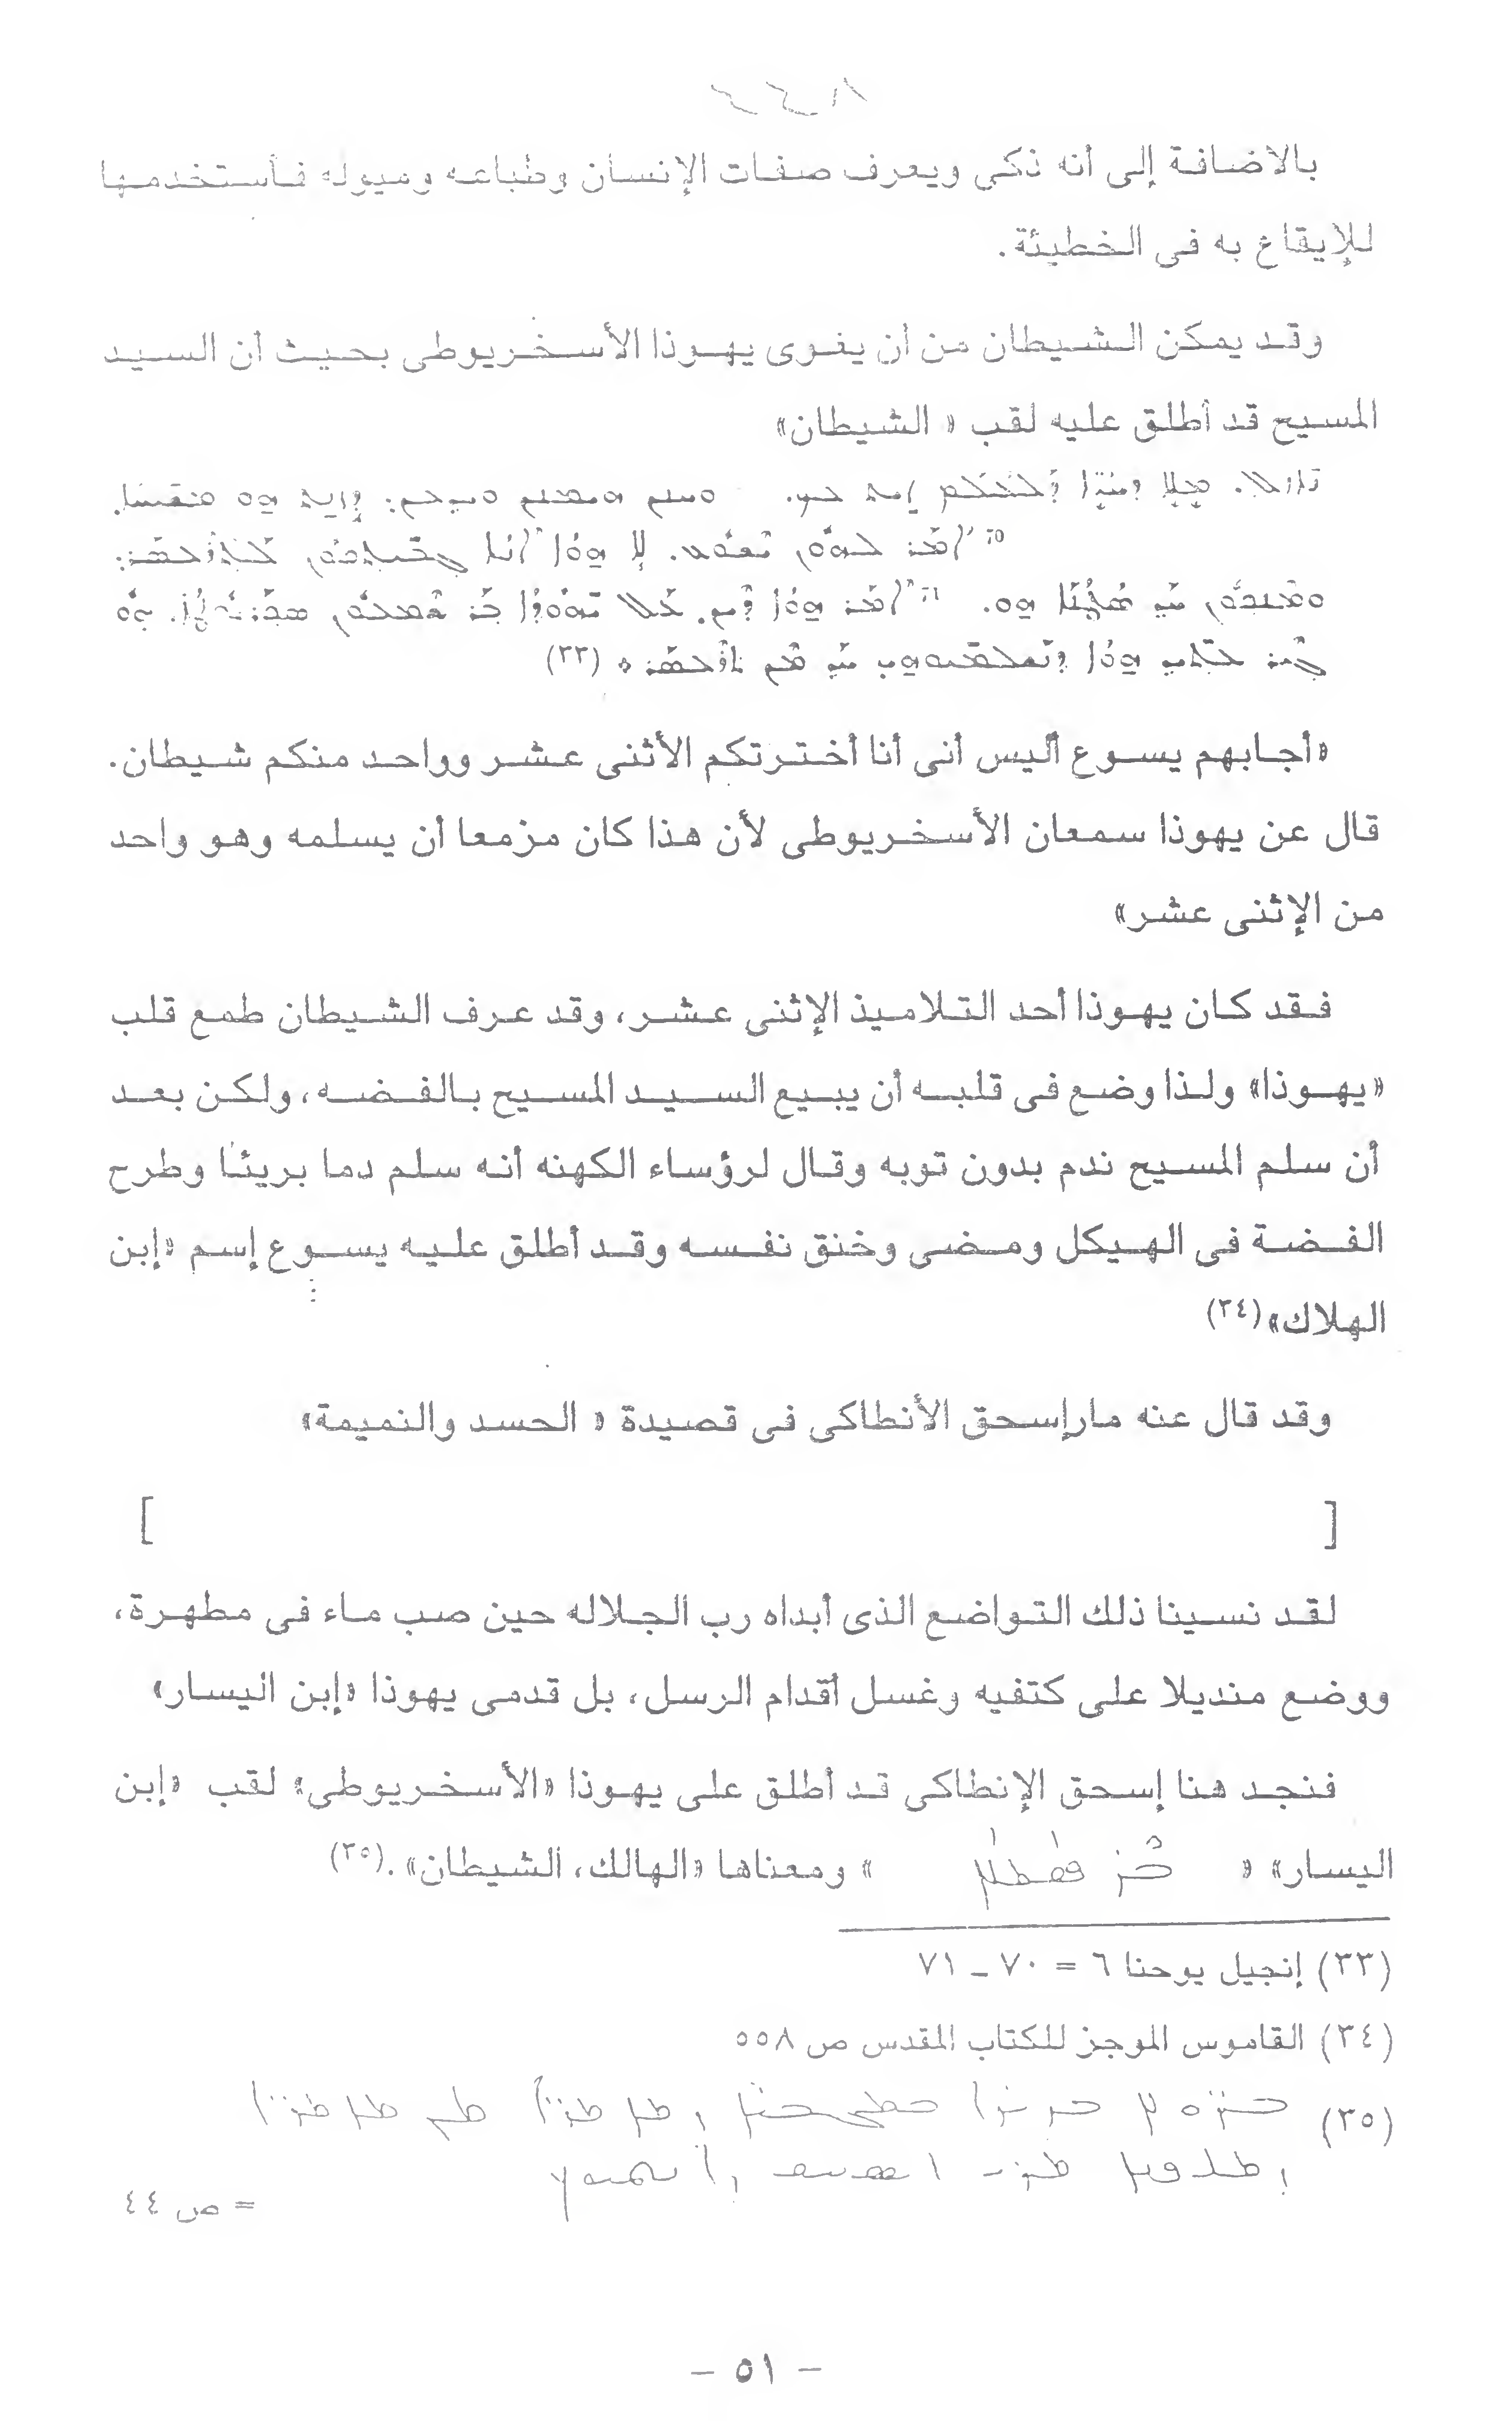 بالاضافة إلى أنه ذكى ويعرف صفات الإنسان وطباعه وميوله فأستخدمها
للإيقاع به فى الخطيئة.
وقد يمكن الشيطان من أن يغوى يهوذا الأسخريوطى بحيث أن السيد
المسيح قد أطلق عليه لقب « الشيطان»
(٣٣)
«أجابهم يسوع أليس أنى أنا أخترتكم الأثنى عشر وواحد منكم شيطان.
قال عن يهوذا سمعان الأسخريوطى لأن هذا كان مزمعا أن يسلمه وهو واحد
من الإثنى عشر»
فقد كان يهوذا أحد التلاميذ الإثنى عشر، وقد عرف الشيطان طمع قلب
«يهوذا» ولذا وضع فى قلبه أن يبيع السيد المسيح بالفضه، ولكن بعد
أن سلم المسيح ندم بدون توبه وقال لرؤساء الكهنه أنه سلم دما بريئا وطرح
الفضة فى الهيكل ومضى وخنق نفسه وقد أطلق عليه يسوع إسم «إبن
الهلاك»(٣٤)
وقد قال عنه مارإسحق الأنطاكى فى قصيدة « الحسد والنميمة»
[ ]
لقد نسينا ذلك التواضع الذى أبداه رب الجلاله حين صب ماء فى مطهرة،
ووضع منديلا على كتفيه وغسل أقدام الرسل، بل قدمى يهوذا «إبن اليسار»
فنجد هنا إسحق الإنطاكى قد أطلق على يهوذا «الأسخريوطى» لقب «إبن
اليسار» « » ومعناها «الهالك، الشيطان».(٣٥)
(٣٣) إنجيل يوحنا ٦ = ٧٠ ـ ٧١
(٣٤) القاموس الموجز للكتاب المقدس ص ٥٥٨
(٣٥)
= ص ٤٤
– ٥١ –